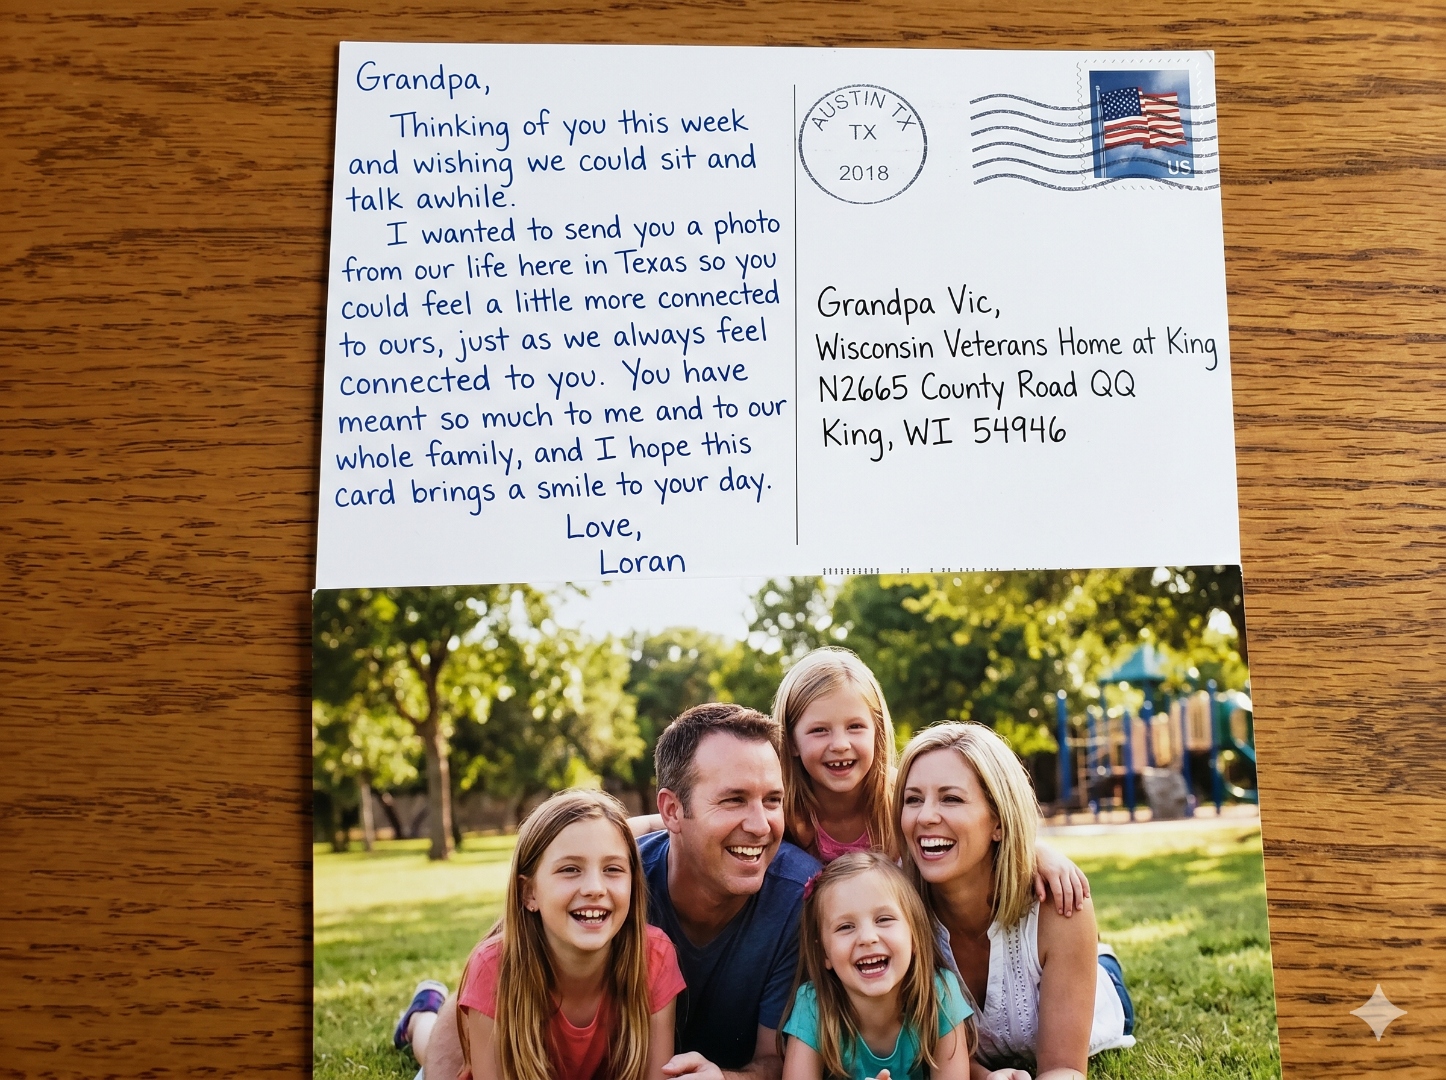 Grandpa,
Thinking of you this week
and wishing we could sit and
talk awhile.
I wanted to send you a photo
from our life here in Texas so you
could feel a little more connected
to ours, just as we always feel
connected to you. You have
meant so much to me and to our
whole family, and I hope this
card brings a smile to your day.
Love,
Loran
AUSTIN TX
TX
2018
US
Grandpa Vic,
Wisconsin Veterans Home at King
N2665 County Road QQ
King, WI 54946